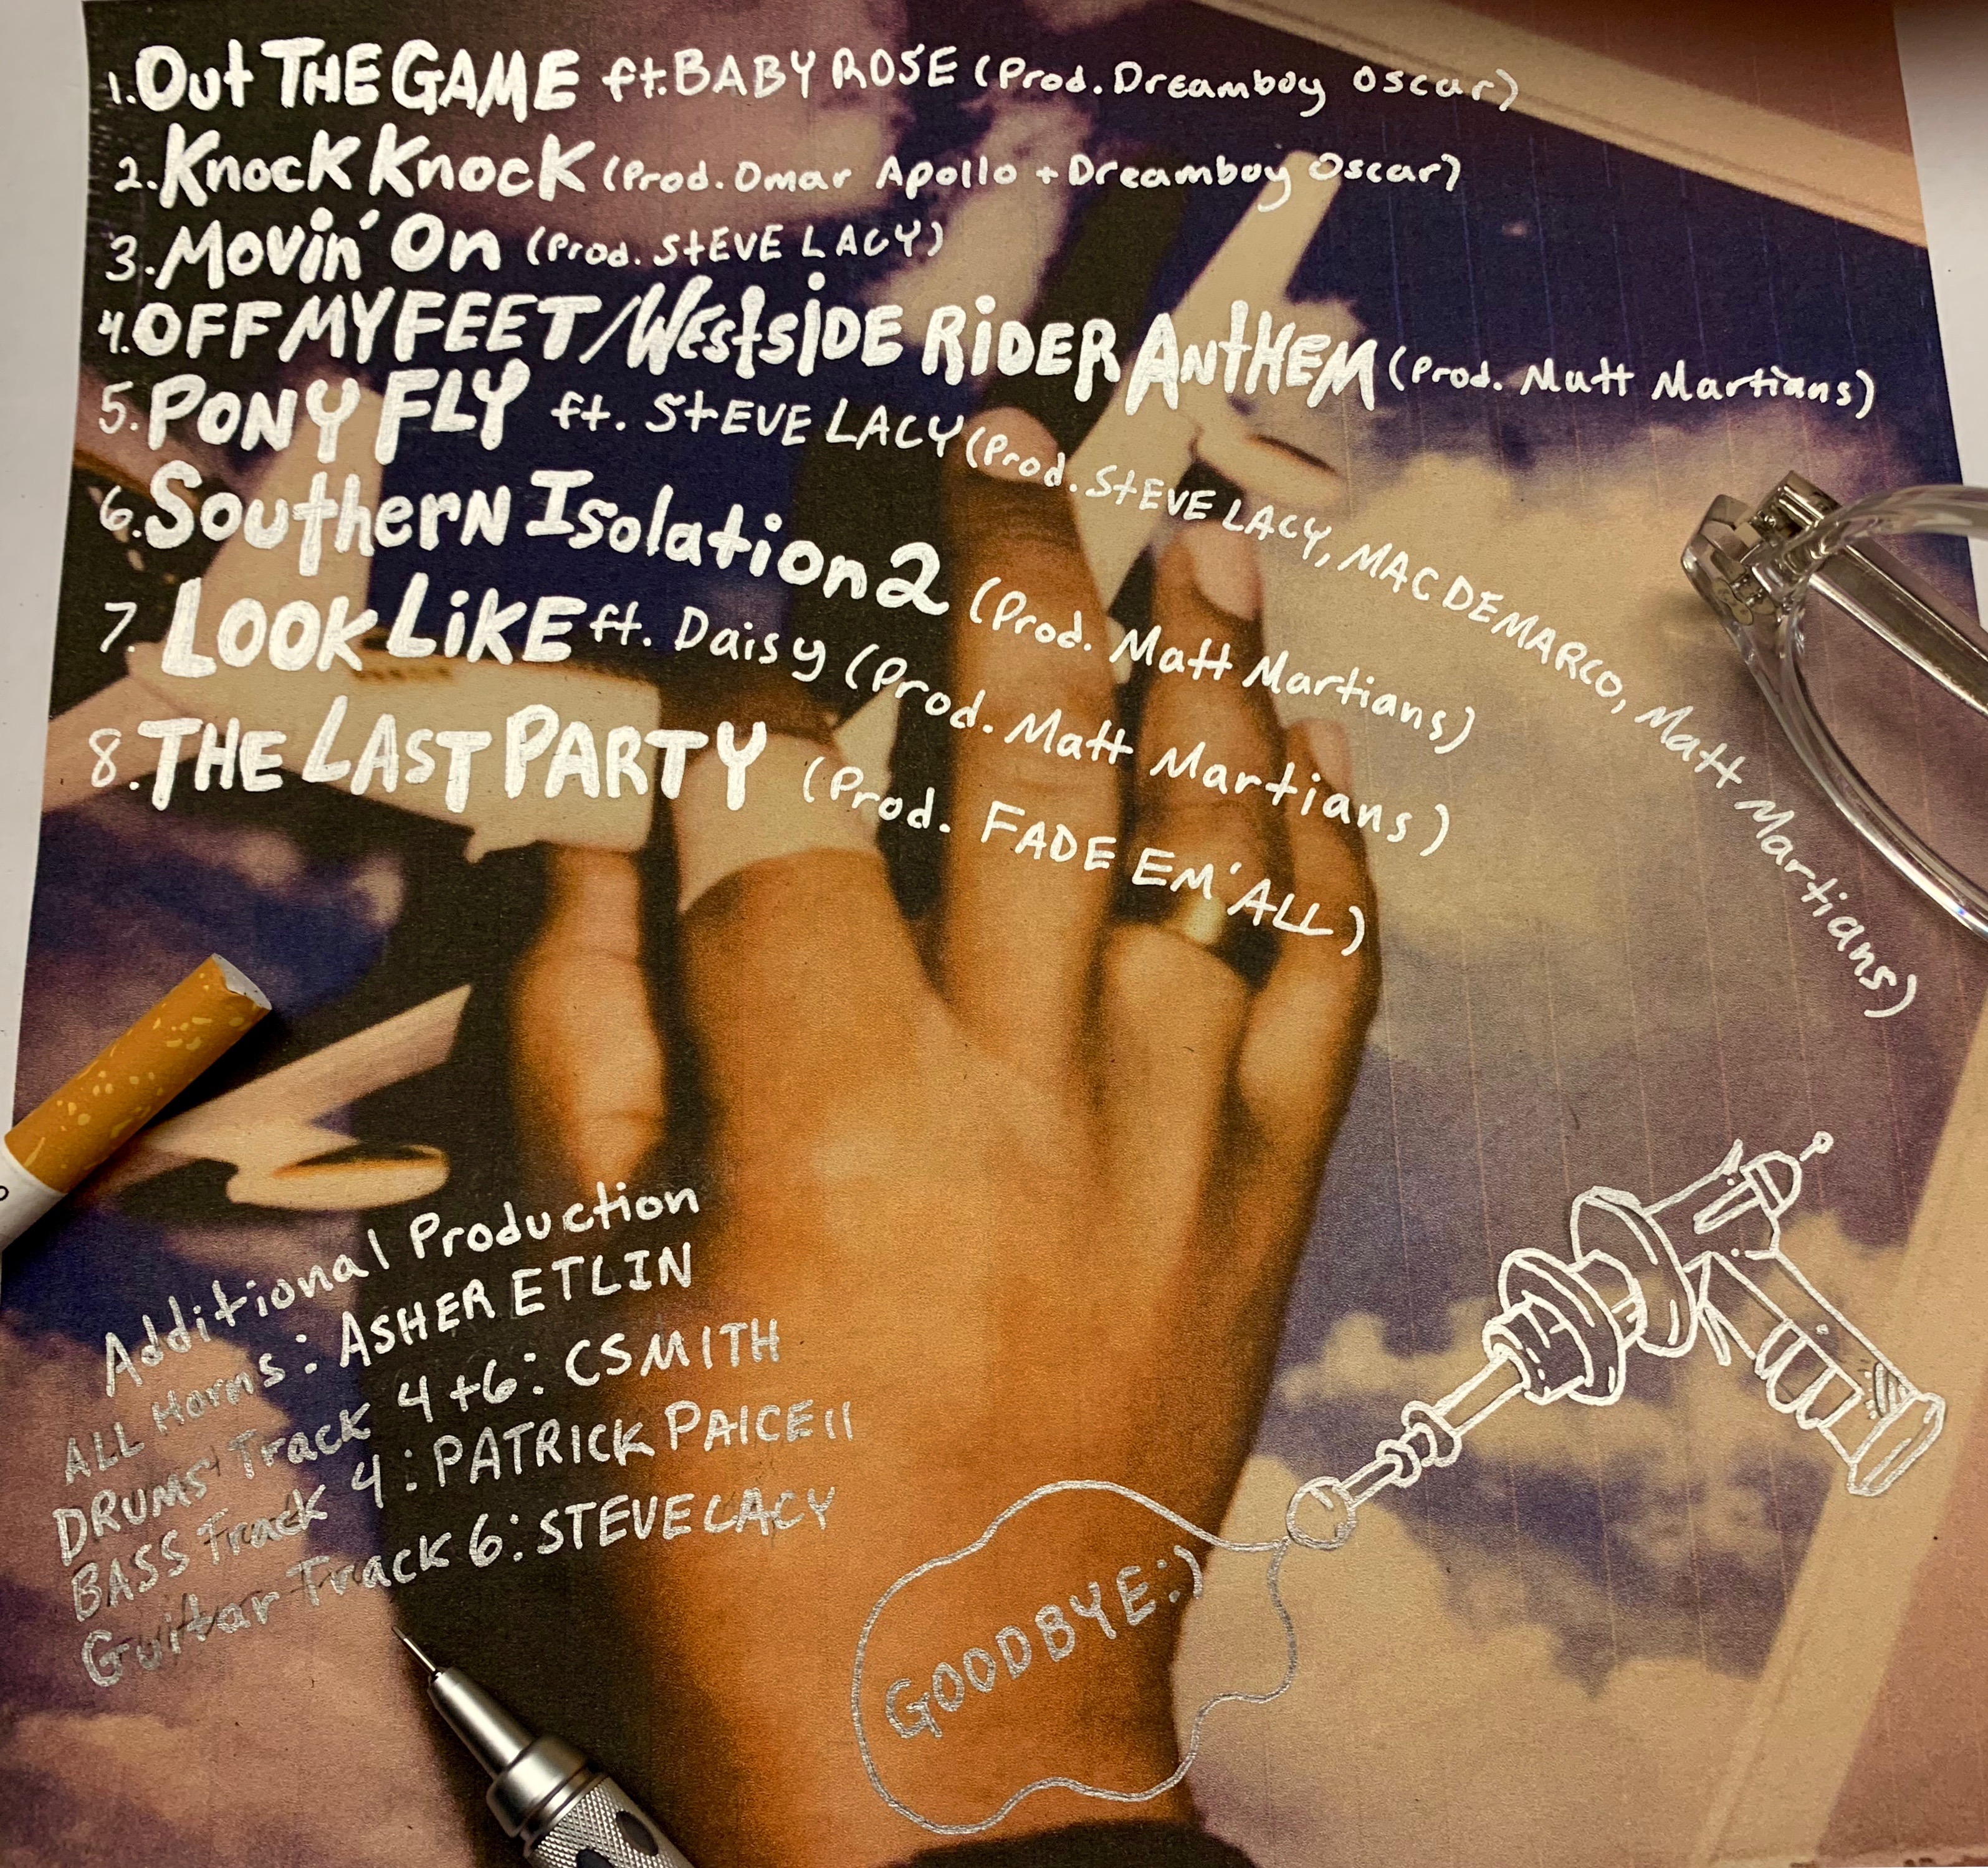 1. Out THE GAME ft. BABY ROSE (Prod. Dreamboy Oscar)
2. Knock Knock (Prod. Omar Apollo + Dreamboy Oscar)
3. Movin' On (Prod. STEVE LACY)
4. OFF MY FEET/Westside RiDER AntHEM (Prod. Matt Martians)
5. PONY FLY ft. STEVE LACY (Prod. STEVE LACY, MAC DEMARCO, Matt Martians)
6. Southern Isolation 2 (Prod. Matt Martians)
7. LOOK LiKE ft. Daisy (Prod. Matt Martians)
8. THE LAST PARTY (Prod. FADE EM' ALL)
Additional Production
ALL Horns: ASHER ETLIN
DRUMS Track 4+6: CSMITH
BASS Track 4: PATRICK PAICE II
Guitar Track 6: STEVE LACY
GOODBYE:)